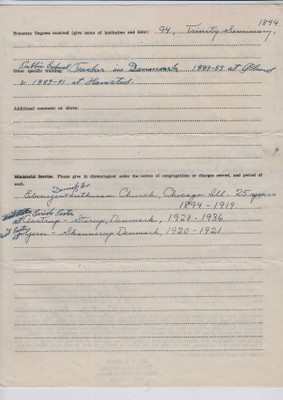 1894
Honorary Degrees received (give name of institution and date): 94, Trinity Seminary,
Public School Teacher in Denmark 1883-85 at Ølund
Other specific training:
& 1889-91 at Hansted.
Additional comment on above:
Ministerial Service. Please give in chronological order the names of congregations or charges served, and period of
each.
Danish Ev.
Ebenezer Lutheran Church, Chicago Ill. 25 years
1894-1919.
Parish Pastor
Starup, Denmark, 1921-1936
Skannerup Denmark, 1920-1921